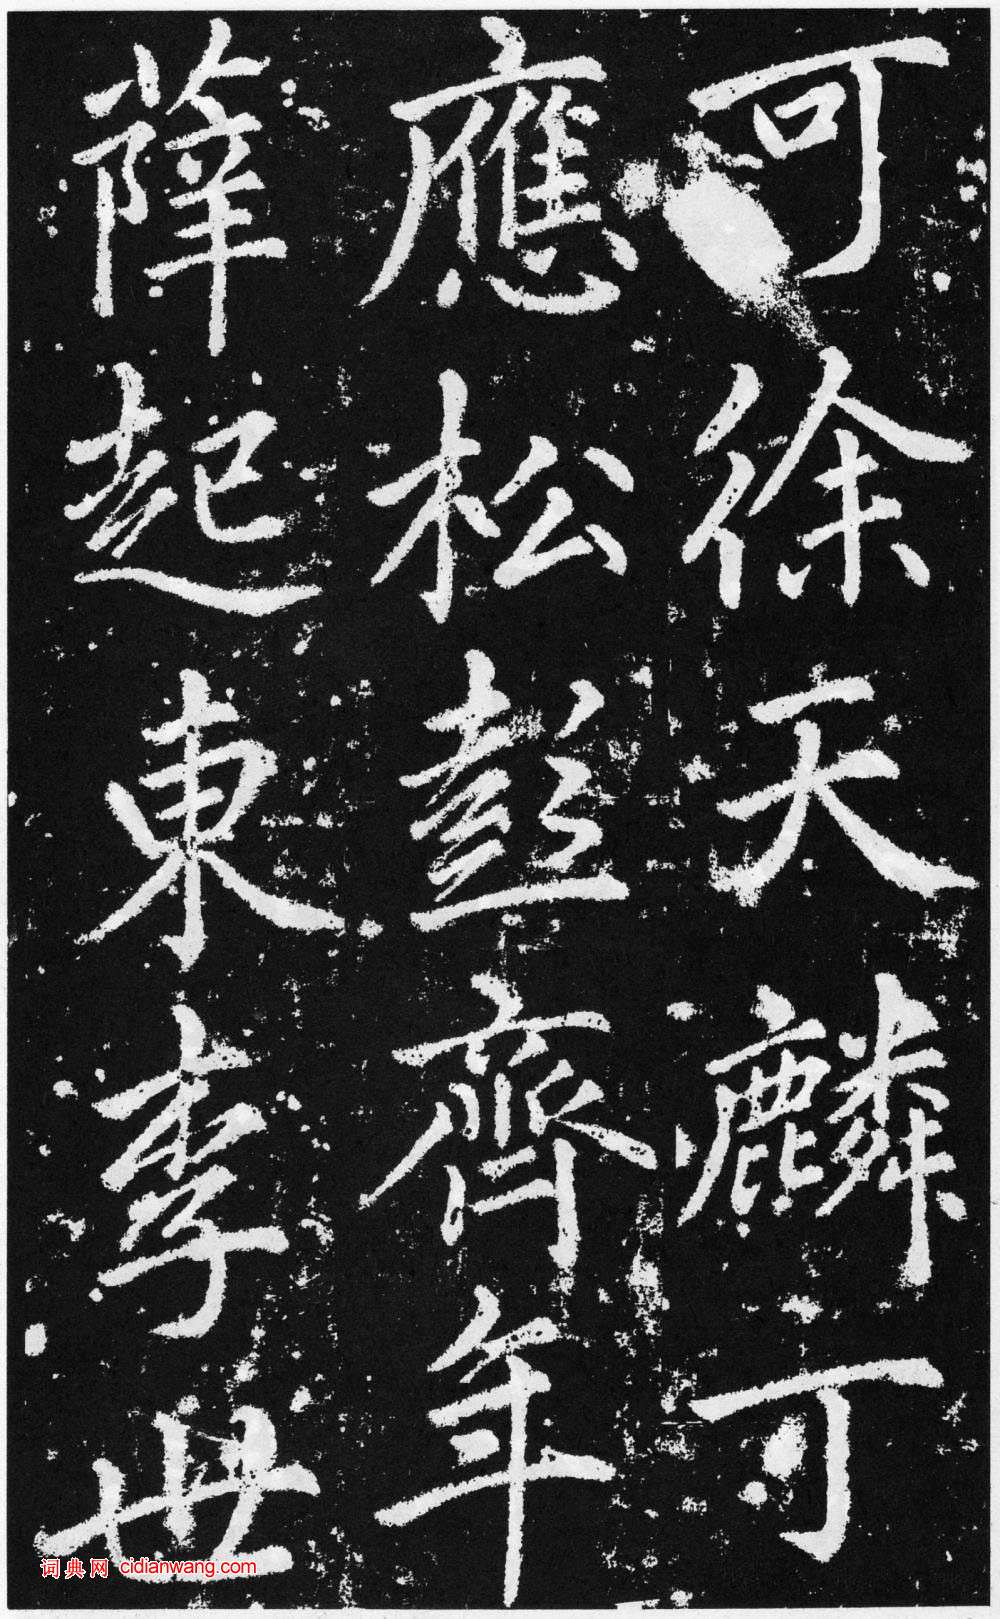 可徐天麟丁
應松彭齊年
薛起東李世
词典网 cidianwang.com